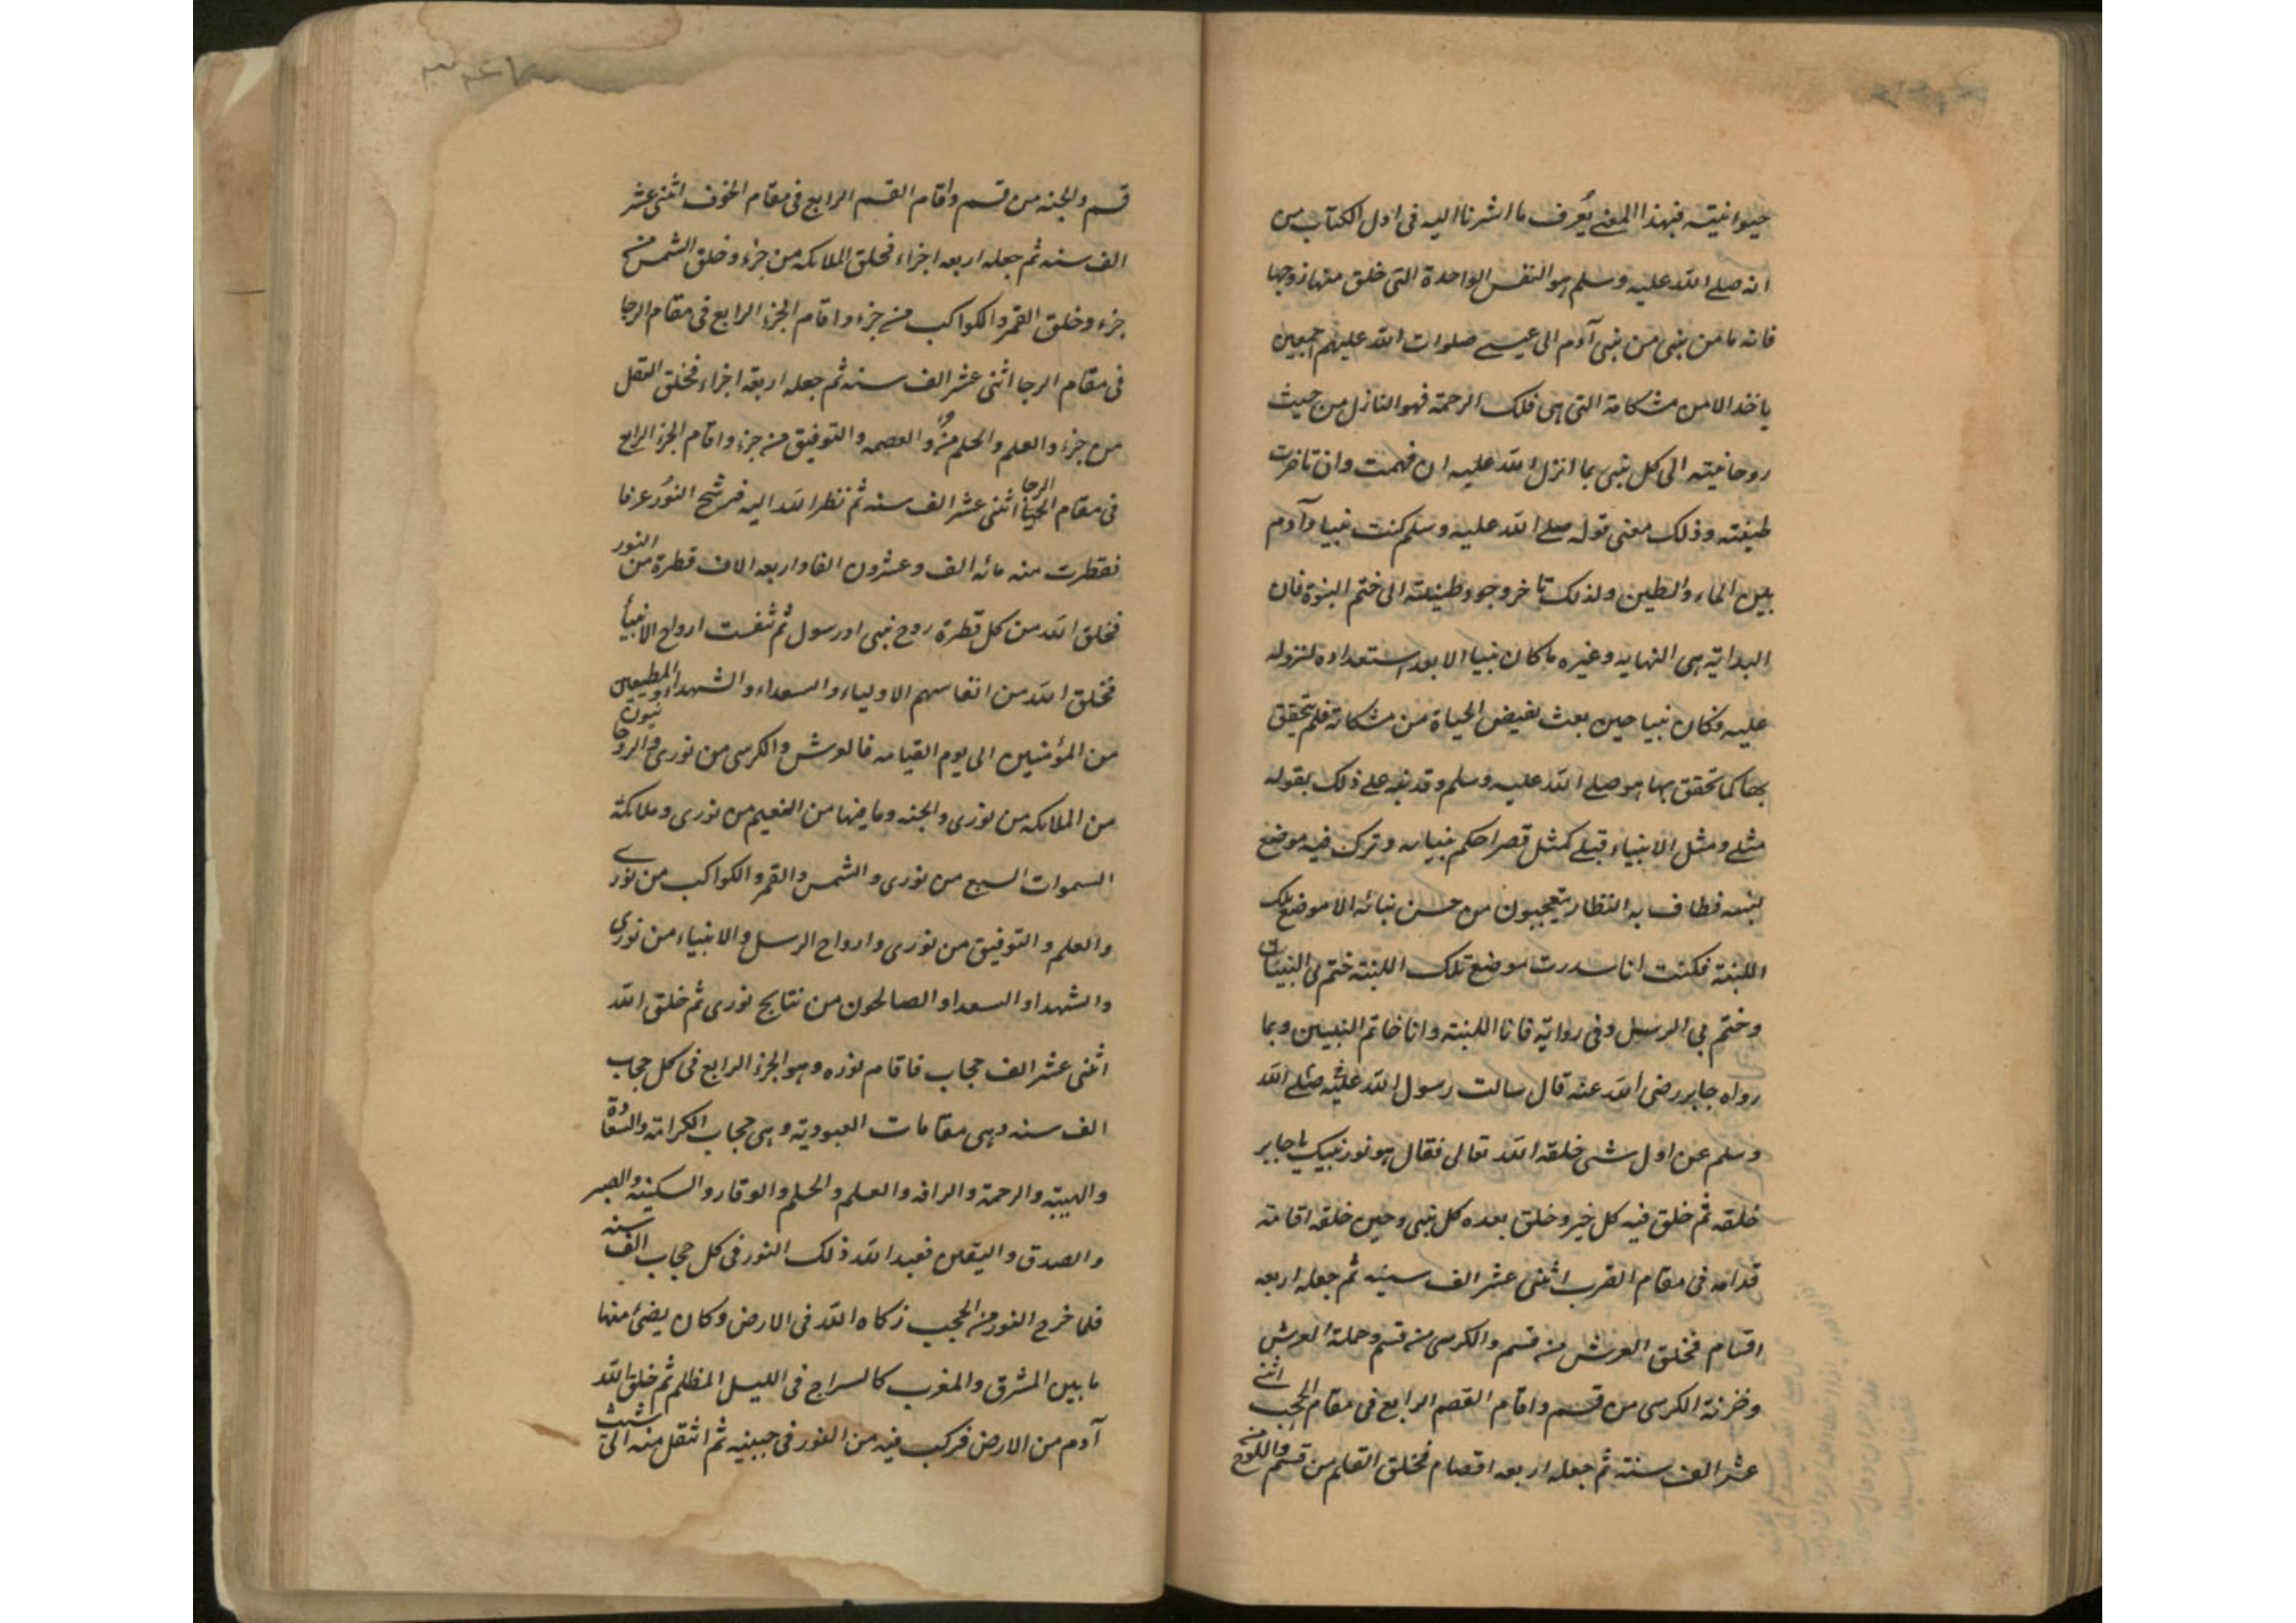 حيوانيته فبهذا المعنى يُعرف ما اشرنا اليه فى اول الكتاب من
انه صلى الله عليه وسلم هو النفس الواحدة التى خلق منها زوجها
فانه ما من نبى من بنى آدم الى عيسى صلوات الله عليهم اجمعين
ياخذ الا من مشكاته التى هى فلك الرحمة فهو النازل من حيث
روحانيته الى كل نبى بما انزل الله عليه ان فهمت وان تاخرت
طينته وذلك معنى قوله صلى الله عليه وسلم كنت نبيا وآدم
بين الماء والطين ولذلك تاخر وجود طينته الى ختم النبوة فان
البداية هى النهايه وغيره ما كان نبيا الا بعد استعداده لنزوله
عليه فكان نبيا حين بعث بفيض الحياة من مشكاته فلم يتحقق
بها كما تحقق بها هو صلى الله عليه وسلم وقد نبه على ذلك بقوله
مثلى ومثل الانبياء قبلى كمثل قصر احكم بنيانه وترك فيه موضع
لبنه فطاف به النظار يتعجبون من حسن بنائه الا موضع تلك
اللبنة فكنت انا سددت موضع تلك اللبنة ختم بى البنيان
وختم بى الرسل وفى رواية فانا اللبنة وانا خاتم النبيين وبما
رواه جابر رضى الله عنه قال سالت رسول الله صلى الله عليه
وسلم عن اول شئ خلقه الله تعالى فقال هو نور نبيك يا جابر
خلقه ثم خلق فيه كل خير وخلق بعده كل نبى وحين خلقه اقامه
قدامه فى مقام القرب اثنى عشر الف سنه ثم جعله اربعه
اقسام فخلق العرش من قسم والكرسى من قسم وحملة العرش
وخزنة الكرسى من قسم واقام القصم الرابع فى مقام الحب اثنى
عشر الف سنة ثم جعله اربعه اقصام فخلق القلم من قسم واللوح من
قسم والجنه من قسم واقام القسم الرابع فى مقام الخوف اثنى عشر
الف سنه ثم جعله اربعه اجزاء فخلق الملائكه من جزء وخلق الشمس من
جزء وخلق القمر والكواكب من جزء واقام الجزء الرابع فى مقام الرجا
فى مقام الرجا اثنى عشر الف سنه ثم جعله اربعة اجزاء فخلق العقل
من جزء والعلم والحلم من جزء والعصمه والتوفيق من جزء واقام الجزء الرابع
فى مقام الحيا الرجا اثنى عشر الف سنه ثم نظر الله اليه فرشح النور عرقا
فقطرت منه مائه الف وعشرون الفا واربعه الاف قطرة من النور
فخلق الله من كل قطرة روح نبى او رسول ثم تنفست ارواح الانبيأ
فخلق الله من انفاسهم الاولياء والسعداء والشهداء والمطيعين
من المؤمنين الى يوم القيامه فالعرش والكرسى من نورى والروحانيون
من الملائكه من نورى والجنه وما فيها من النعيم من نورى وملائكة
السموات السبع من نورى والشمس والقمر والكواكب من نورى
والعلم والتوفيق من نورى وارواح الرسل والانبياء من نورى
والشهدا والسعدا والصالحون من نتايج نورى ثم خلق الله
اثنى عشر الف حجاب فاقام نوره وهو الجزء الرابع فى كل حجاب
الف سنه وهى مقامات العبودية وهى حجاب الكرامة والسعادة
والهيبة والرحمة والرافه والعلم والحلم والوقار والسكينه والصبر
والصدق واليقين فعبد الله ذلك النور فى كل حجاب الف سنه
فلما خرج النور من الحجب زكاه الله فى الارض وكان يضئ منها
ما بين المشرق والمغرب كالسراج فى الليل المظلم ثم خلق الله
آدم من الارض فركب فيه من النور فى جبينه ثم انتقل منه الى شيث